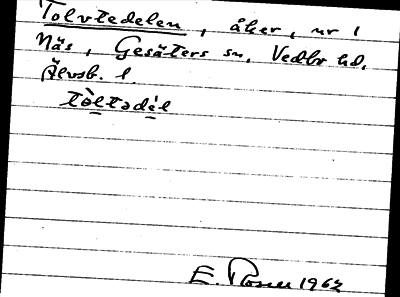 Tolvtedelen, åker, nr 1
Näs, Gesäters sn, Vedbo hd,
Älvsb. l.
tòltədél
E. 1962